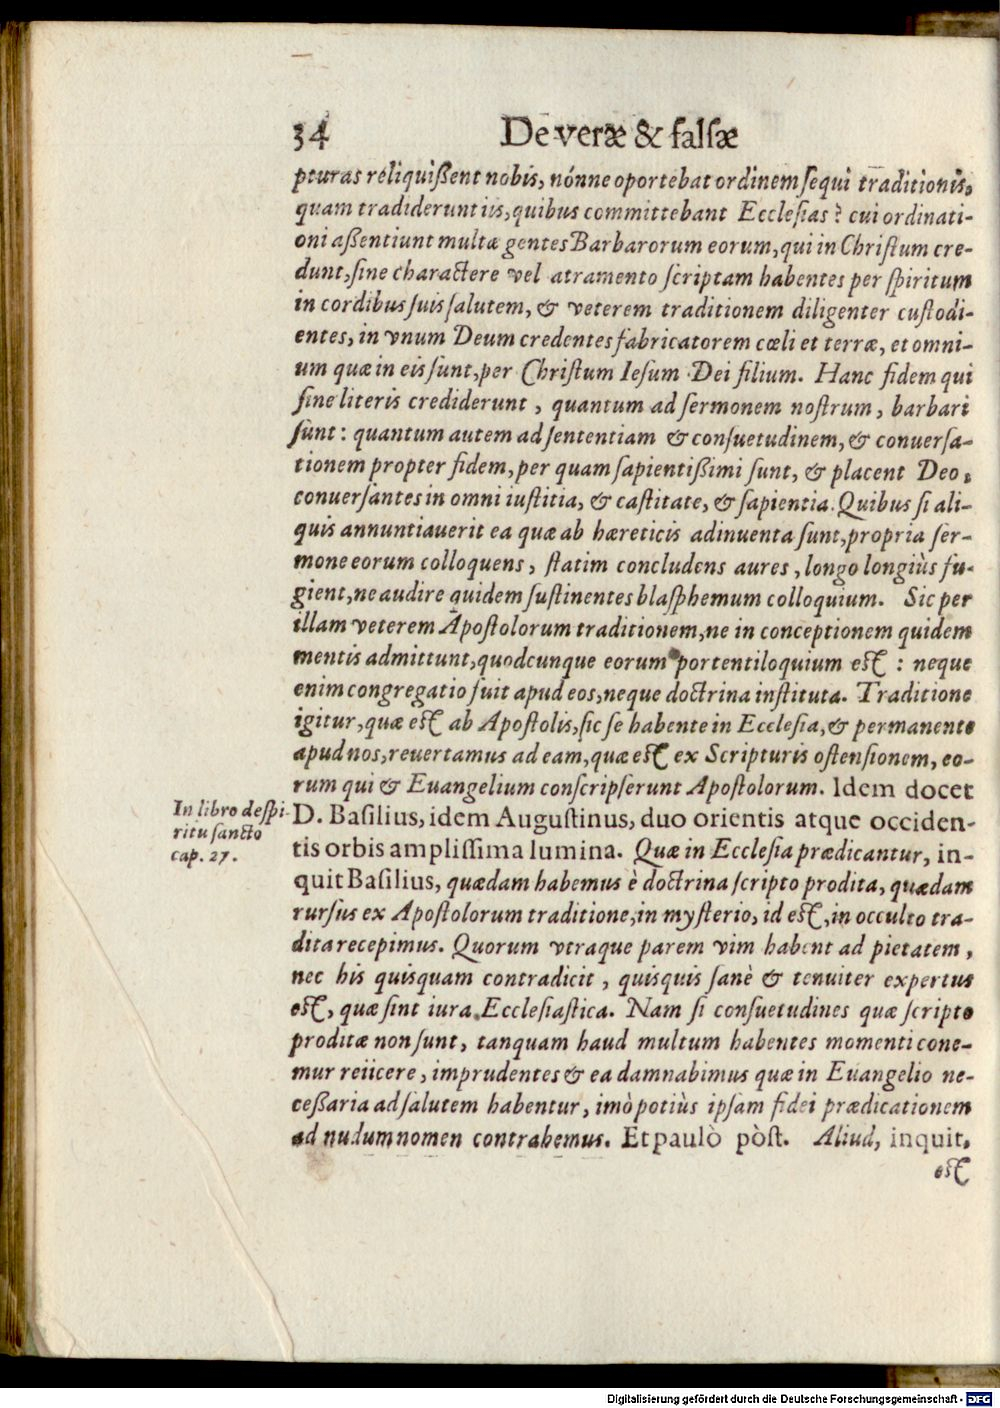 34 De veræ & falsæ
pturas reliquißent nobis, nónne oportebat ordinem sequi traditionis,
quam tradiderunt iis, quibus committebant Ecclesias? cui ordinati-
oni aßentiunt multæ gentes Barbarorum eorum, qui in Christum cre-
dunt, sine charactere vel atramento scriptam habentes per spiritum
in cordibus suis salutem, & veterem traditionem diligenter custodi-
entes, in vnum Deum credentes fabricatorem cœli et terræ, et omni-
um quæ in eis sunt, per Christum Iesum Dei filium. Hanc fidem qui
sine literis crediderunt, quantum ad sermonem nostrum, barbari
sunt: quantum autem ad sententiam & consuetudinem, & conuersa-
tionem propter fidem, per quam sapientißimi sunt, & placent Deo,
conuersantes in omni iustitia, & castitate, & sapientia. Quibus si ali-
quis annuntiauerit ea quæ ab hæreticis adinuenta sunt, propria ser-
mone eorum colloquens, statim concludens aures, longo longiùs fu-
gient, ne audire quidem sustinentes blasphemum colloquium. Sic per
illam veterem Apostolorum traditionem, ne in conceptionem quidem
mentis admittunt, quodcunque eorum portentiloquium est: neque
enim congregatio fuit apud eos, neque doctrina instituta. Traditione
igitur, quæ est ab Apostolis, sic se habente in Ecclesia, & permanente
apud nos, reuertamus ad eam, quæ est ex Scripturis ostensionem, eo-
rum qui & Euangelium conscripserunt Apostolorum. Idem docet
In libro de spi-
ritu sancto
cap. 27.
D. Basilius, idem Augustinus, duo orientis atque occiden-
tis orbis amplissima lumina. Quæ in Ecclesia prædicantur, in-
quit Basilius, quædam habemus è doctrina scripto prodita, quædam
rursus ex Apostolorum traditione, in mysterio, id est, in occulto tra-
dita recepimus. Quorum vtraque parem vim habent ad pietatem,
nec his quisquam contradicit, quisquis sanè & tenuiter expertus
est, quæ sint iura Ecclesiastica. Nam si consuetudines quæ scripto
proditæ non sunt, tanquam haud multum habentes momenti cone-
mur reiicere, imprudentes & ea damnabimus quæ in Euangelio ne-
ceßaria ad salutem habentur, imò potiùs ipsam fidei prædicationem
ad nudum nomen contrahemus. Et paulò pòst. Aliud, inquit,
est
Digitalisierung gefördert durch die Deutsche Forschungsgemeinschaft - DFG